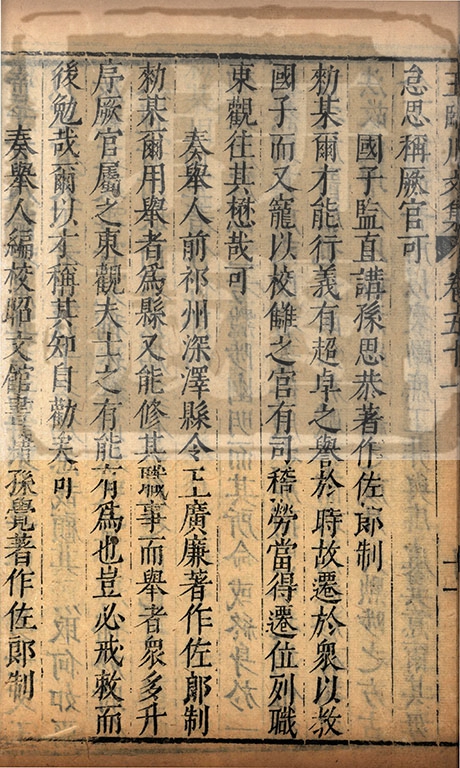 王臨川文集 卷五十一 十一
怠思稱厥官可
國子監直講孫思恭著作佐郎制
勑某爾才能行義有超卓之譽於時故遷於衆以教
國子而又寵以校讎之官有司稽勞當得遷位列職
東觀往其懋哉可
奏舉人前祁州深澤縣令王廣廉著作佐郎制
勑某爾用舉者爲縣又能修其職事而舉者衆多升
序厥官屬之東觀夫士之有能有爲也豈必戒敕而
後勉哉爾以才稱其知自勸矣可
奏舉人編校昭文館書籍孫覺著作佐郎制